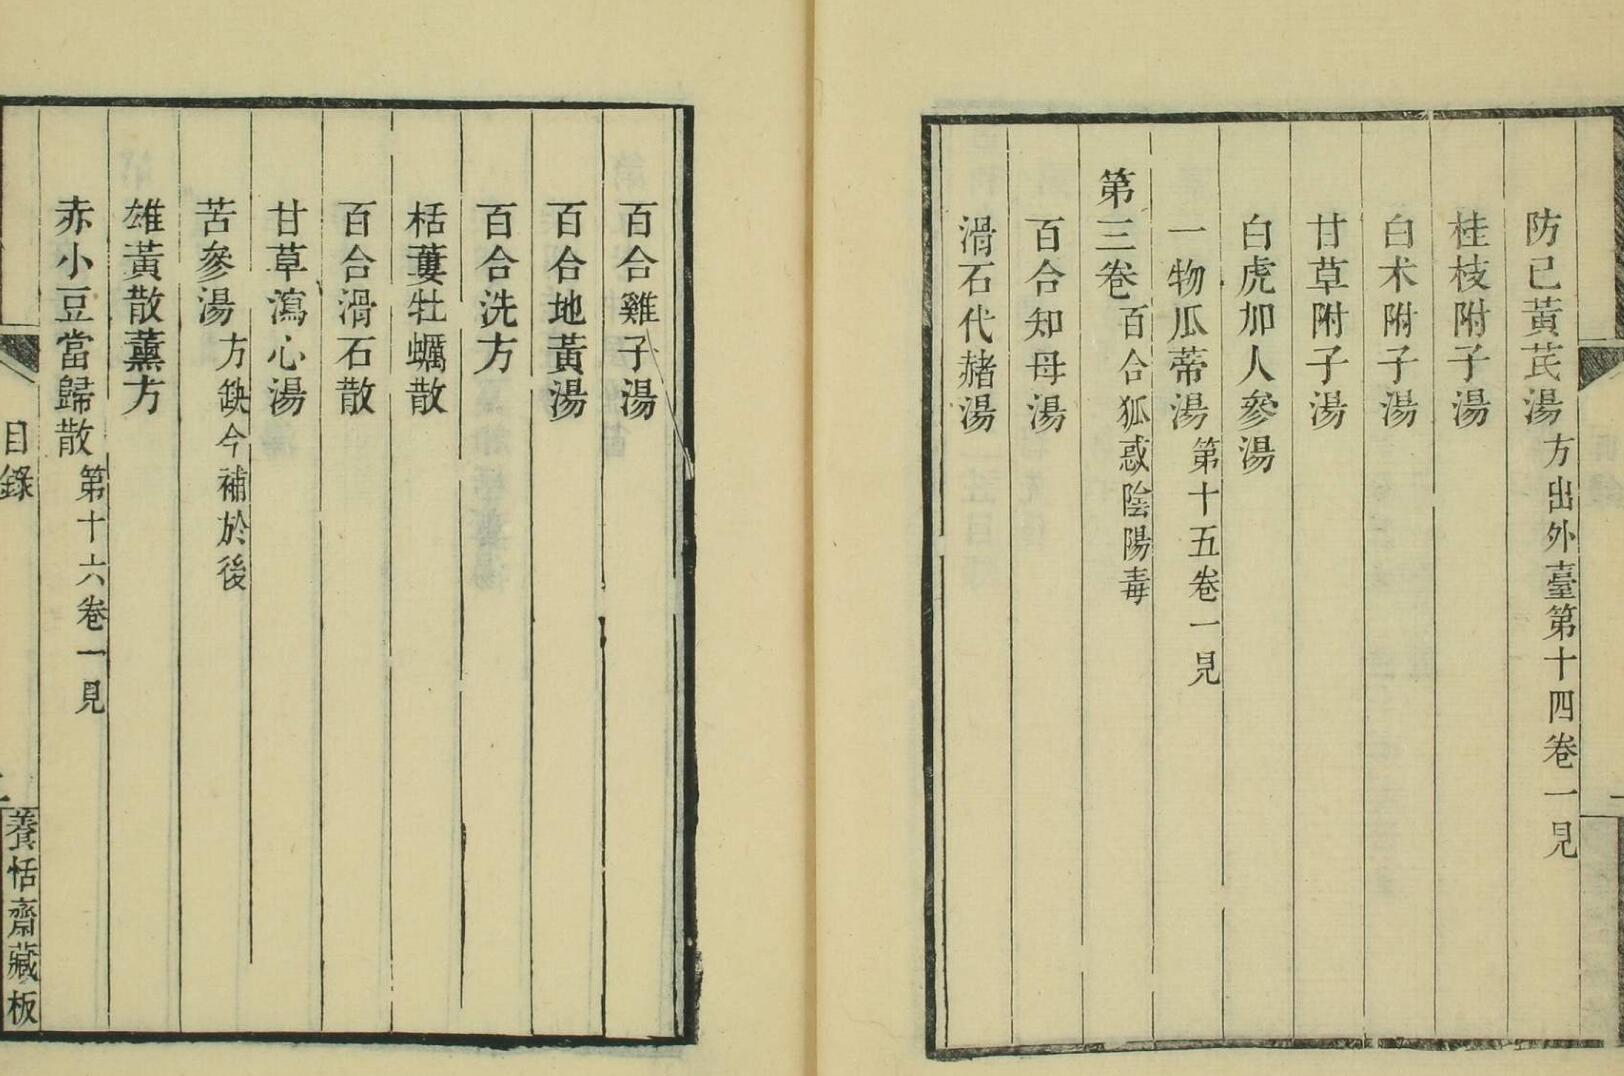 防已黃芪湯方出外臺第十四卷一見
桂枝附子湯
白术附子湯
甘草附子湯
白虎加人參湯
一物瓜蒂湯第十五卷一見
第三卷百合狐惑陰陽毒
百合知母湯
滑石代赭湯
百合雞子湯
百合地黃湯
百合洗方
栝蔞牡蠣散
百合滑石散
甘草瀉心湯
苦參湯方缺今補於後
雄黃散薰方
赤小豆當歸散第十六卷一見
目錄
養恬齋藏板